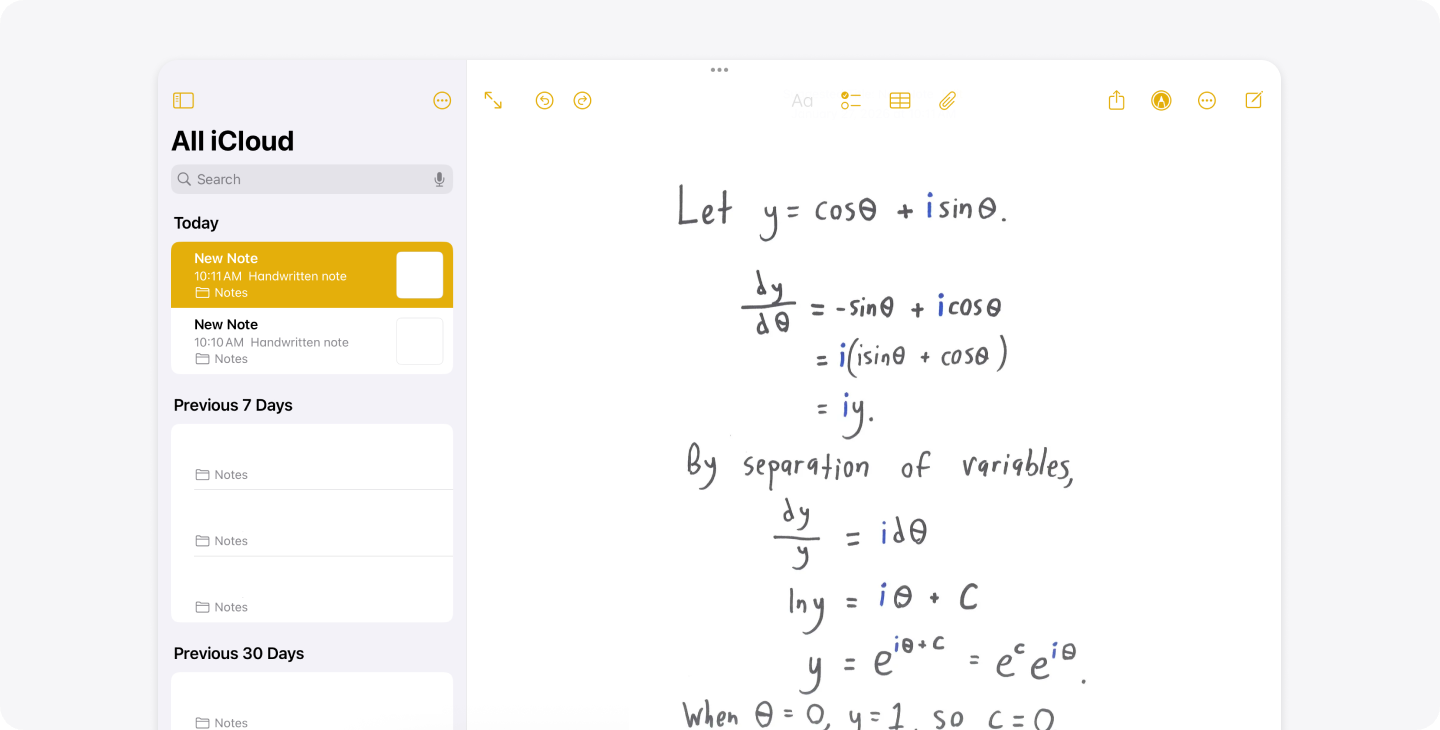 All iCloud
Search
Today
New Note
10:11 AM Handwritten note
Notes
New Note
10:10 AM Handwritten note
Notes
Previous 7 Days
Notes
Notes
Notes
Previous 30 Days
Notes
Aa
Let y = cosθ + i sinθ.
dy/dθ = -sinθ + i cosθ
= i(isinθ + cosθ)
= iy.
By separation of variables,
dy/y = i dθ
ln y = iθ + C
y = e^{iθ + C} = e^c e^{iθ}.
When θ = 0, y = 1, so c = 0